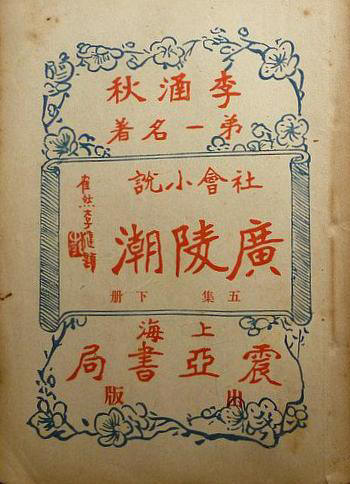 李涵秋
第一名著
社會小說
廣陵潮
五集 下册
上海
震亞書局
出版